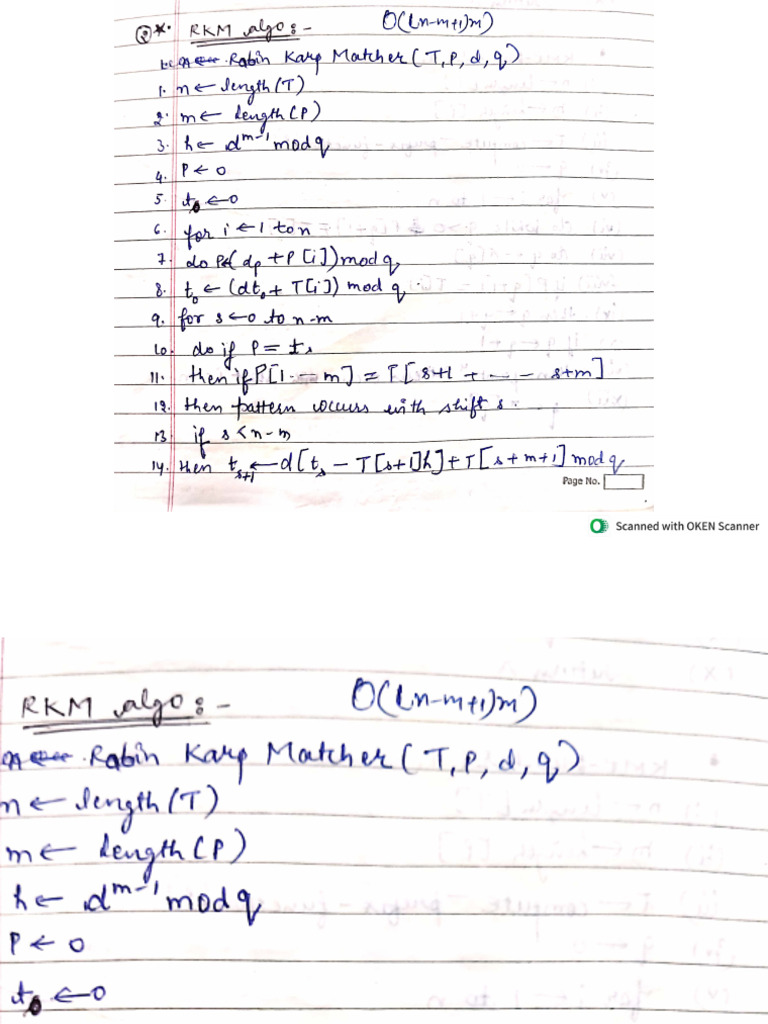 ② *. RKM algo :- O((n-m+1)m)
Rabin Karp Matcher (T, P, d, q)
1. n ← length (T)
2. m ← length (P)
3. h ← d^m-1 mod q
4. P ← 0
5. t₀ ← 0
6. for i ← 1 to n
7. do P ← (dp + P[i]) mod q
8. t₀ ← (dt₀ + T[i]) mod q
9. for s ← 0 to n-m
10. do if P = ts
11. then if P[1 - - m] = T[s+1 + ... - s+m]
12. then pattern occurs with shift s.
13. if s < n-m
14. then ts+1 ← d[ts - T[s+1]h] + T[s+m+1] mod q
Page No.
Scanned with OKEN Scanner
RKM algo :- O((n-m+1)m)
Rabin Karp Matcher (T, P, d, q)
n ← length (T)
m ← length (P)
h ← d^m-1 mod q
P ← 0
t₀ ← 0